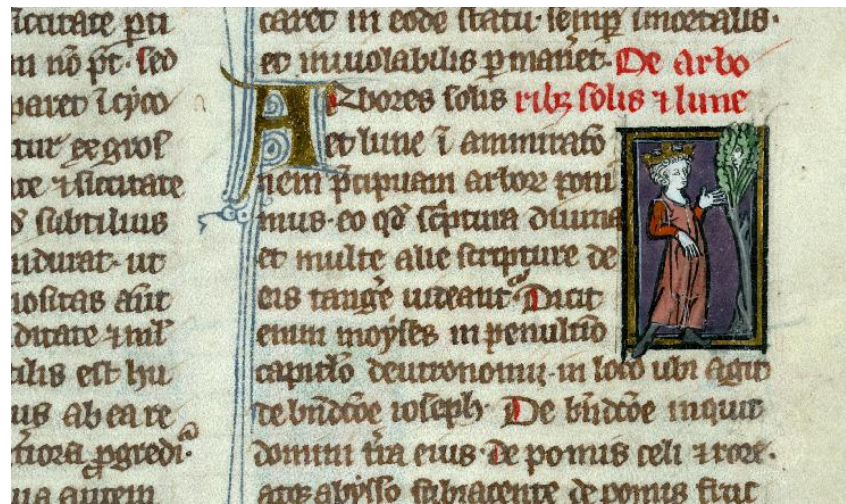 iccitate pti
m nō pt. sed
paret
tur
te ⁊ siccitate
subtilius
indurat. ut
iositas aut
ditate ⁊ nil
tilis est hu
us ab ea re
tiora ꝓgredi
ua autem
caret in eodē statu. semꝑ īmortalis.
et inuiolabilis ꝑmanet. De arbo
Arbores solis ribꝫ solis ⁊ lune
et lune ī ammiratō
nem p̄cipuam arboꝝ poni
mus. eo qd̄ sc̄ptura diuina
et multe alie scripture de
eis tangē uideant᷑. Dicit
enim moyses in penultīo
capitl̓o deutronomii. in loco ubi agit
de bn̄dcōe ioseph. De bn̄dcōe inquit
domini t̄ra eius. de pomis celi ⁊ rore.
atqꝫ abysso subiacente de pomis fruc